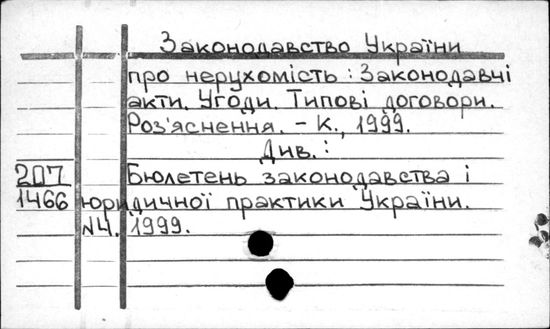 Законодавство України
про нерухомість: Законодавчі
акти. Угоди. Типові договори.
Роз'яснення. - К., 1999.
Див.:
207 Бюлетень законодавства і
1466 юридичної практики України.
N4. 1999.